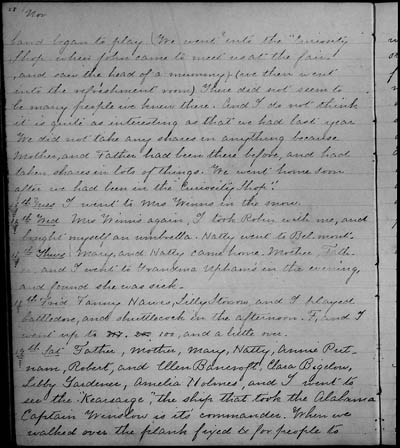 Nov
band began to play (We went into the "Curiosity
Shop when John came to meet us at the fair
, and saw the head of a mummy) (we then went
into the refreshment room) There did not seem to
be many people we knew there. And I do not think
it is quite as interesting as that we had last year
We did not take any shares in anything because
Mother, and Father had been there before, and had
taken shares in lots of things. We went home soon
after we had been in the "Curiosity Shop".
th Tues I went to Mrs Winns in the snow.
th Wed Mrs Winns again, I took Robin with me, and
bought myself an umbrella. Natty went to Belmont.
th Thurs Mary, and Natty came home. Mother,
and I went to Grandma Uphams in the evening,
and found she was sick.
18th Frid Fanny Lilly and I played
battledore, and shuttlecock in the afternoon. F, and I
went up to 100, and a little over.
19th Sat Father, Mother, Mary, Natty, Annie Put-
nam, Robert, and Ellen Bancroft, Clara Bigelow,
Libby Gardener, Amelia Holmes, and I went to
see the "Kearsage", the ship that took the Alabama
Captain Winslow is its commander. When we
walked over the plank fixed for people to